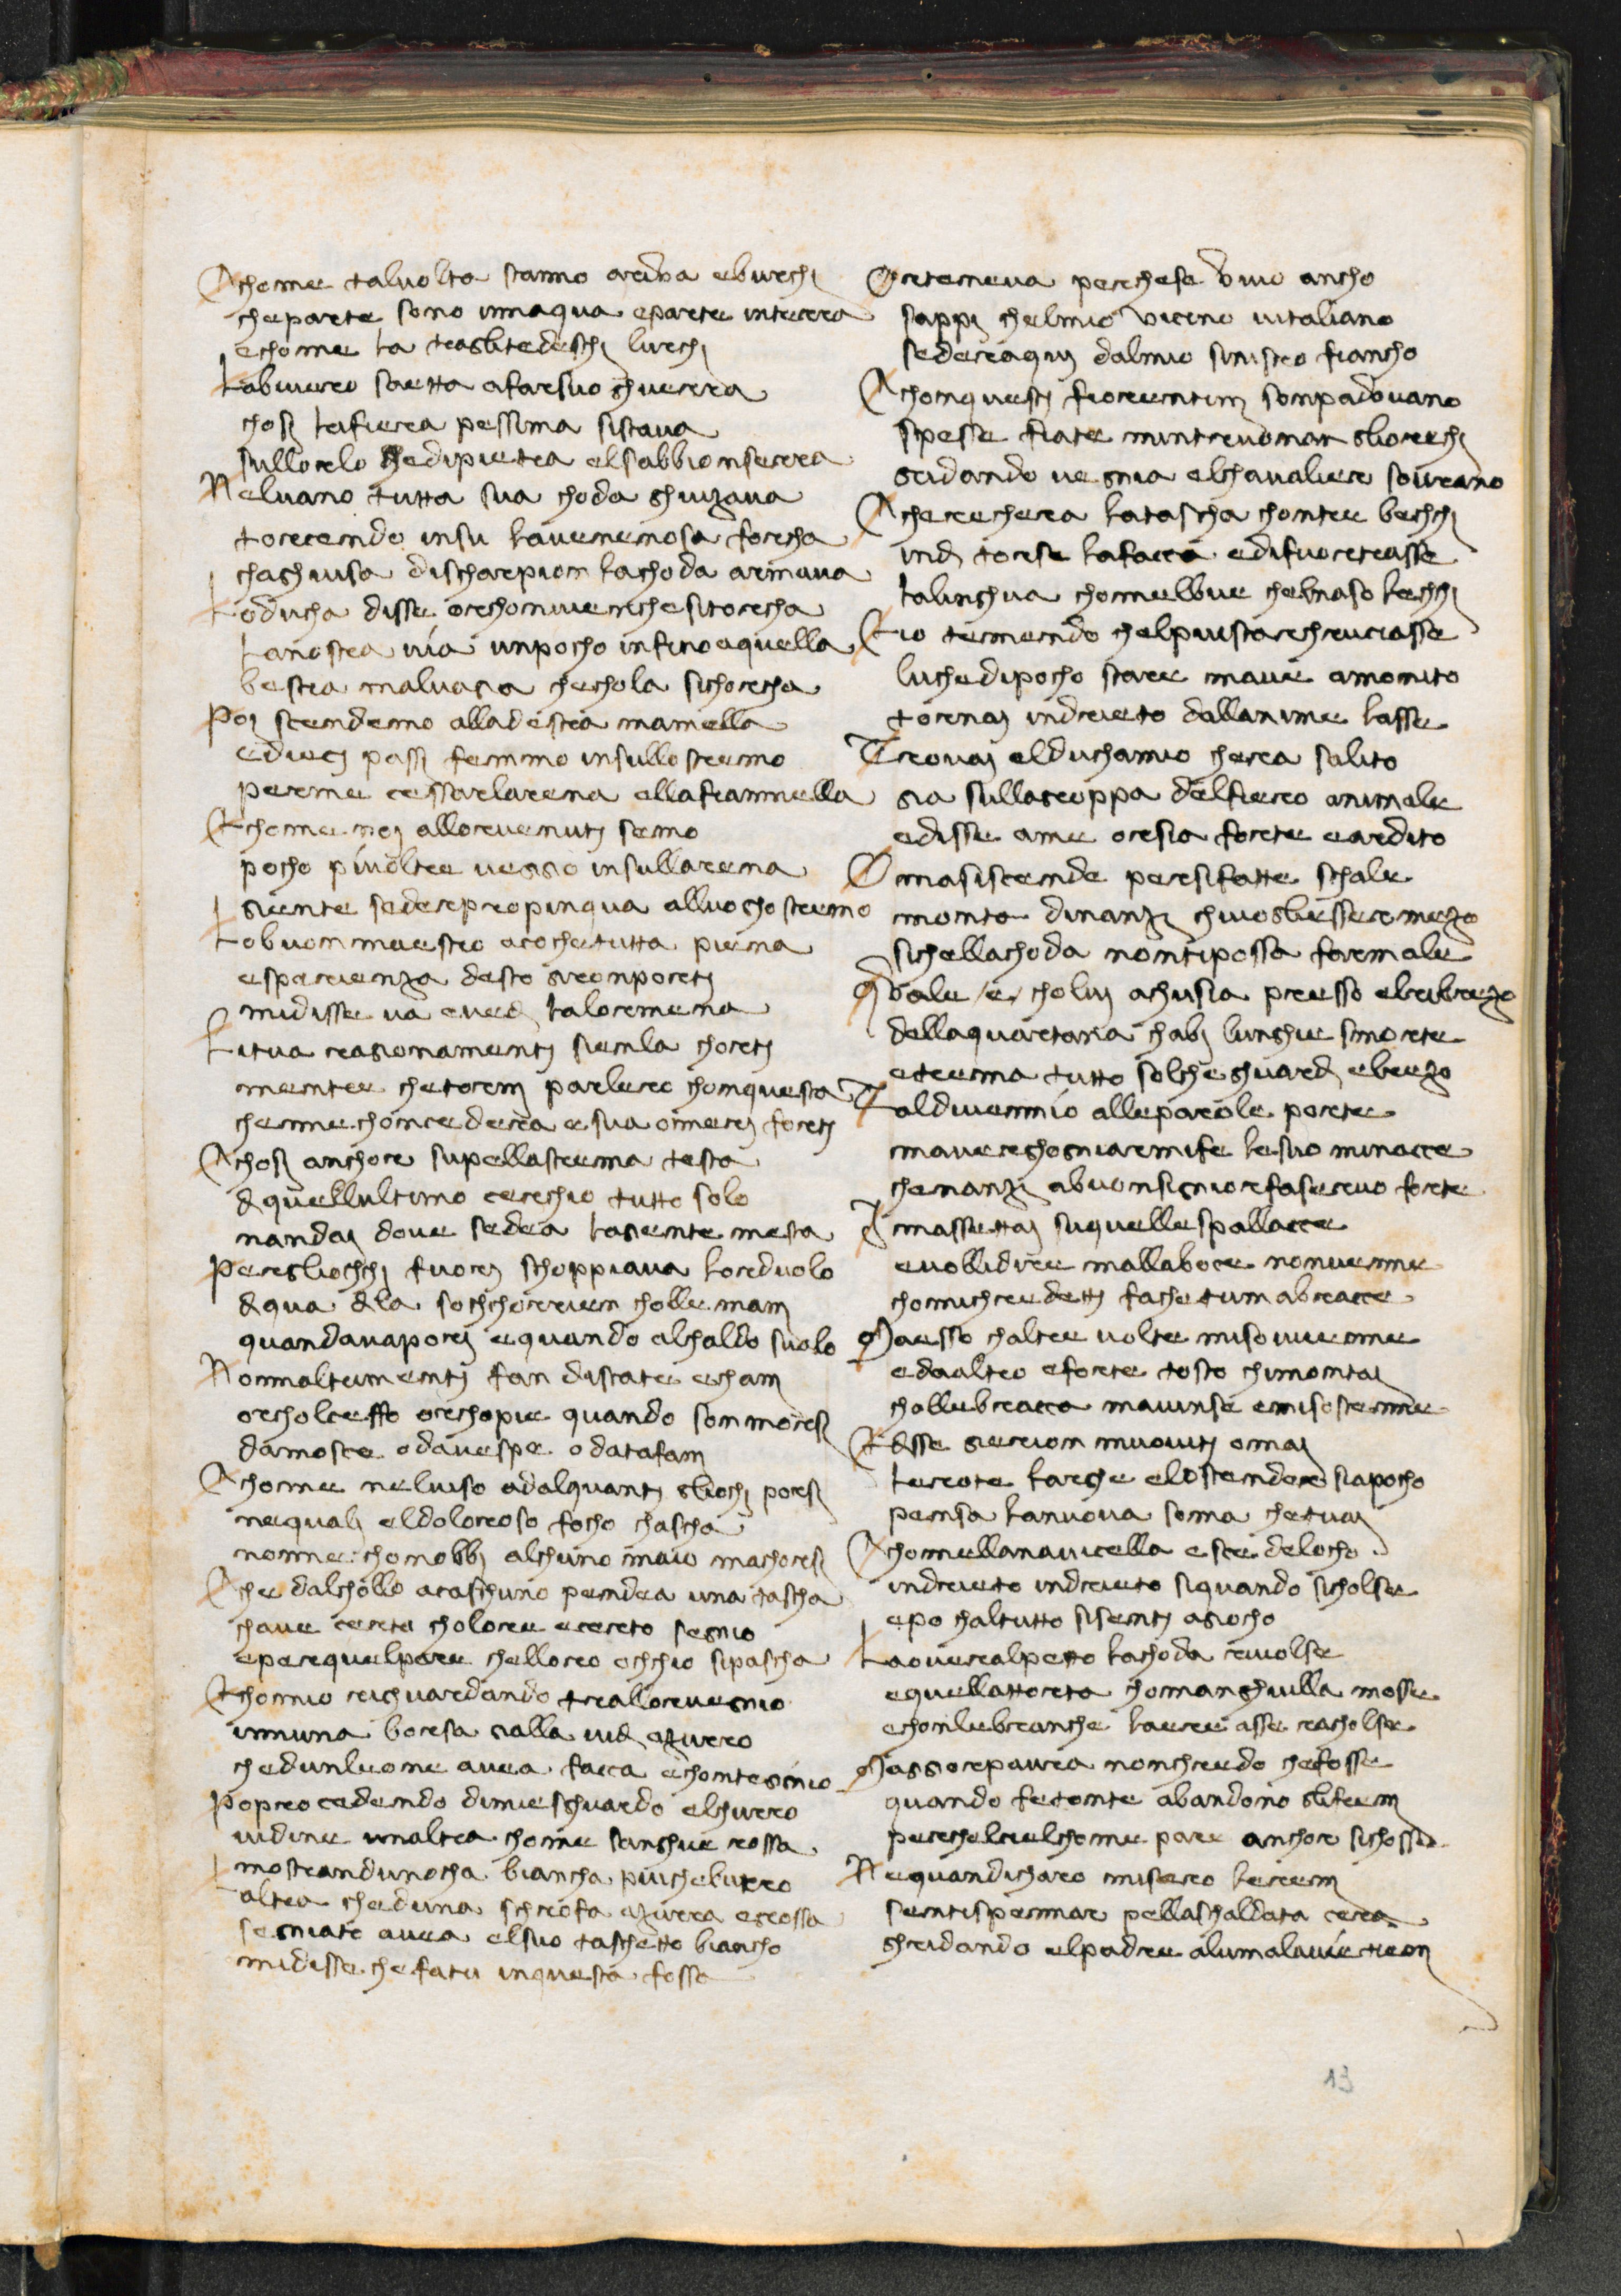 Chome talvolta stanno ariva eburchi
cheparte sono innaqua eparte interra
echome la traglitedeschi lurchi
Lobivero sasetta afarsuo ghuerra
chosi lafiera pessima sistava
sullorlo chedipietra elsabbionserra
Nelvano tutta sua choda ghuizava
torcendo insu lavenenosa forcha
chaghuisa discharpion lachoda armava
Loducha disse orchonvienchesitorcha
lanostra via unpocho infinoaquella
bestia malvagia chechola sichorcha
Poi scendemo alladestra mamella
edieci passi femmo insullostremo
perme cessarlarena ellafiammella
Echome noi allorevenuti semo
pocho piuoltre veggio insullarena
giente sederpropinqua alluochostremo
Lobuonmaestro acochetutta piena
esperienza desto gironporti
midisse va evedi laloromena
Lituoi ragionamenti sienla chorti
mentre chetorni parlero chonquesta
chenne choncedera esuoi omeri forti
Chosi anchor supellastrema testa
di quellultimo cerchio tutto solo
nandai dove sedea lagente mesta
Peregliochchi fuori schoppiava lorduolo
di qua di la sochchorrien cholle mani
quandavapori equando alchaldo suolo
Nonnaltrimenti fan distate echani
orcholceffo orchopie quando sonmorsi
damosce odavespe odatafani
Chome nelviso adalquanti gliochi porsi
nequali eldoloroso focho chascha
nonne chonobbi alchuno maio machorsi
Che dalchollo acaschuno pendea una tascha
chave certo cholore ecerto segnio
eperequelpare chelloro ochchio sipascha
Echomio reighuardando traloro vegnio
innuna borsa gialla vidi azurro
chedunleone avea facca echontegnio
Poprocedendo dimiesghuardo elchurro
vidine unaltra chome sanghue rossa
mostrandunocha biancha piucheburro
altra cheduna schrofa azurra egrossa
segniato avea elsuo taschetto biancho
midisse chefatu inquesta fossa
Ortenevai perchese vivo ancho
sappi chelmio vicino vitaliano
sederaqui dalmio sinistro fiancho
Chonquesti fiorentini sonpadovano
spesse fiate mintronan gliorechi
gridando vegnia elchavalier sovrano
Cherechera latascha chontre bechchi
indi torse lafacca edifuortrasse
lalinghua chomelbue chelnaso lechchi
Eio temendo chelpiustarchruciasse
luichedipocho stare mavie amonito
tornai indrieto dallanime lasse
Trovai elduchamio chera salito
gia sullagroppa delfiero animale
edisse ame orsia forte eardito
Omasiscende persifatte schale
monta dinanzi chivoglessermezo
sichellachoda nontipossa farmale
Quale /e/ cholui achusia presso elribrezo
dellaquartana chabi lunghie smorte
etrema tutto solche ghuardi elrezo
Taldivennio alleparole porte
mavergognniarmife lesuo minacce
chenanzi abuonsigniorefaservo forte
I massettai suquellespallacce
evollidire mallaboce nonvenne
chomichredetti fachetumabracce
Maesso chaltre volte misovienne
edaaltro eforte tosto chimontai
chollebracca mavinse emisostenne
Edisse gierion muoviti omai
lerote large eloscendere siapocho
pensa lanuova soma chetuai
Chomellanavicella esce delocho
indrieto indrieto siquando sicholse
epo chaltutto sisenti agiocho
Laoveralpetto lachoda rivolse
equellattorta chomanghuilla mosse
echonlebranche laere asse racholse
Maggiorpaura nonchredo chefosse
quando fetonte abandono glifreni
perchelcielchome pare anchor sichosse
Nequandicharo misero lereni
sentispennar pellaschaldata cera
ghridando elpadre aluimalaviatieni
13